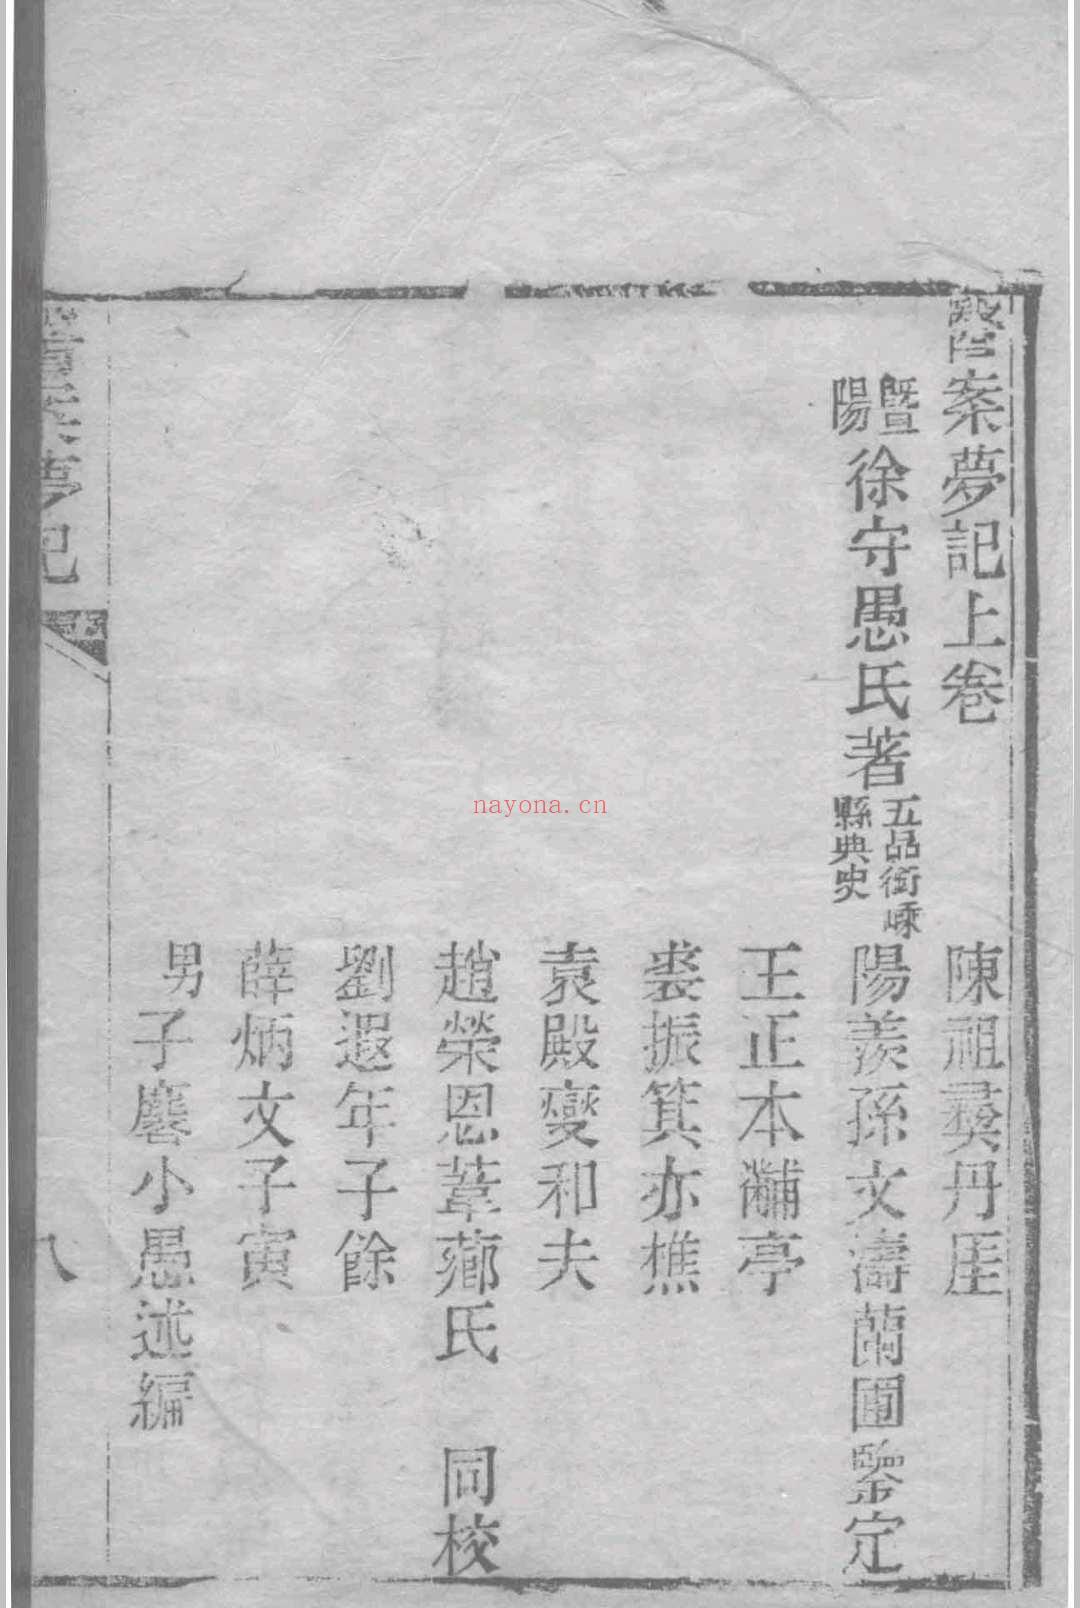 醫案夢記上卷
陳祖彛丹厓
暨陽徐守愚氏著五品銜嵊縣典史
陽羨孫文濤蘭圃鑒定
王正本黼亭
裘振箕亦樵
袁殿變和夫
趙榮恩葦薌氏 同校
劉遐年子餘
薛炳文子寅
男子麐小愚述編
醫案夢記
八
nayona.cn